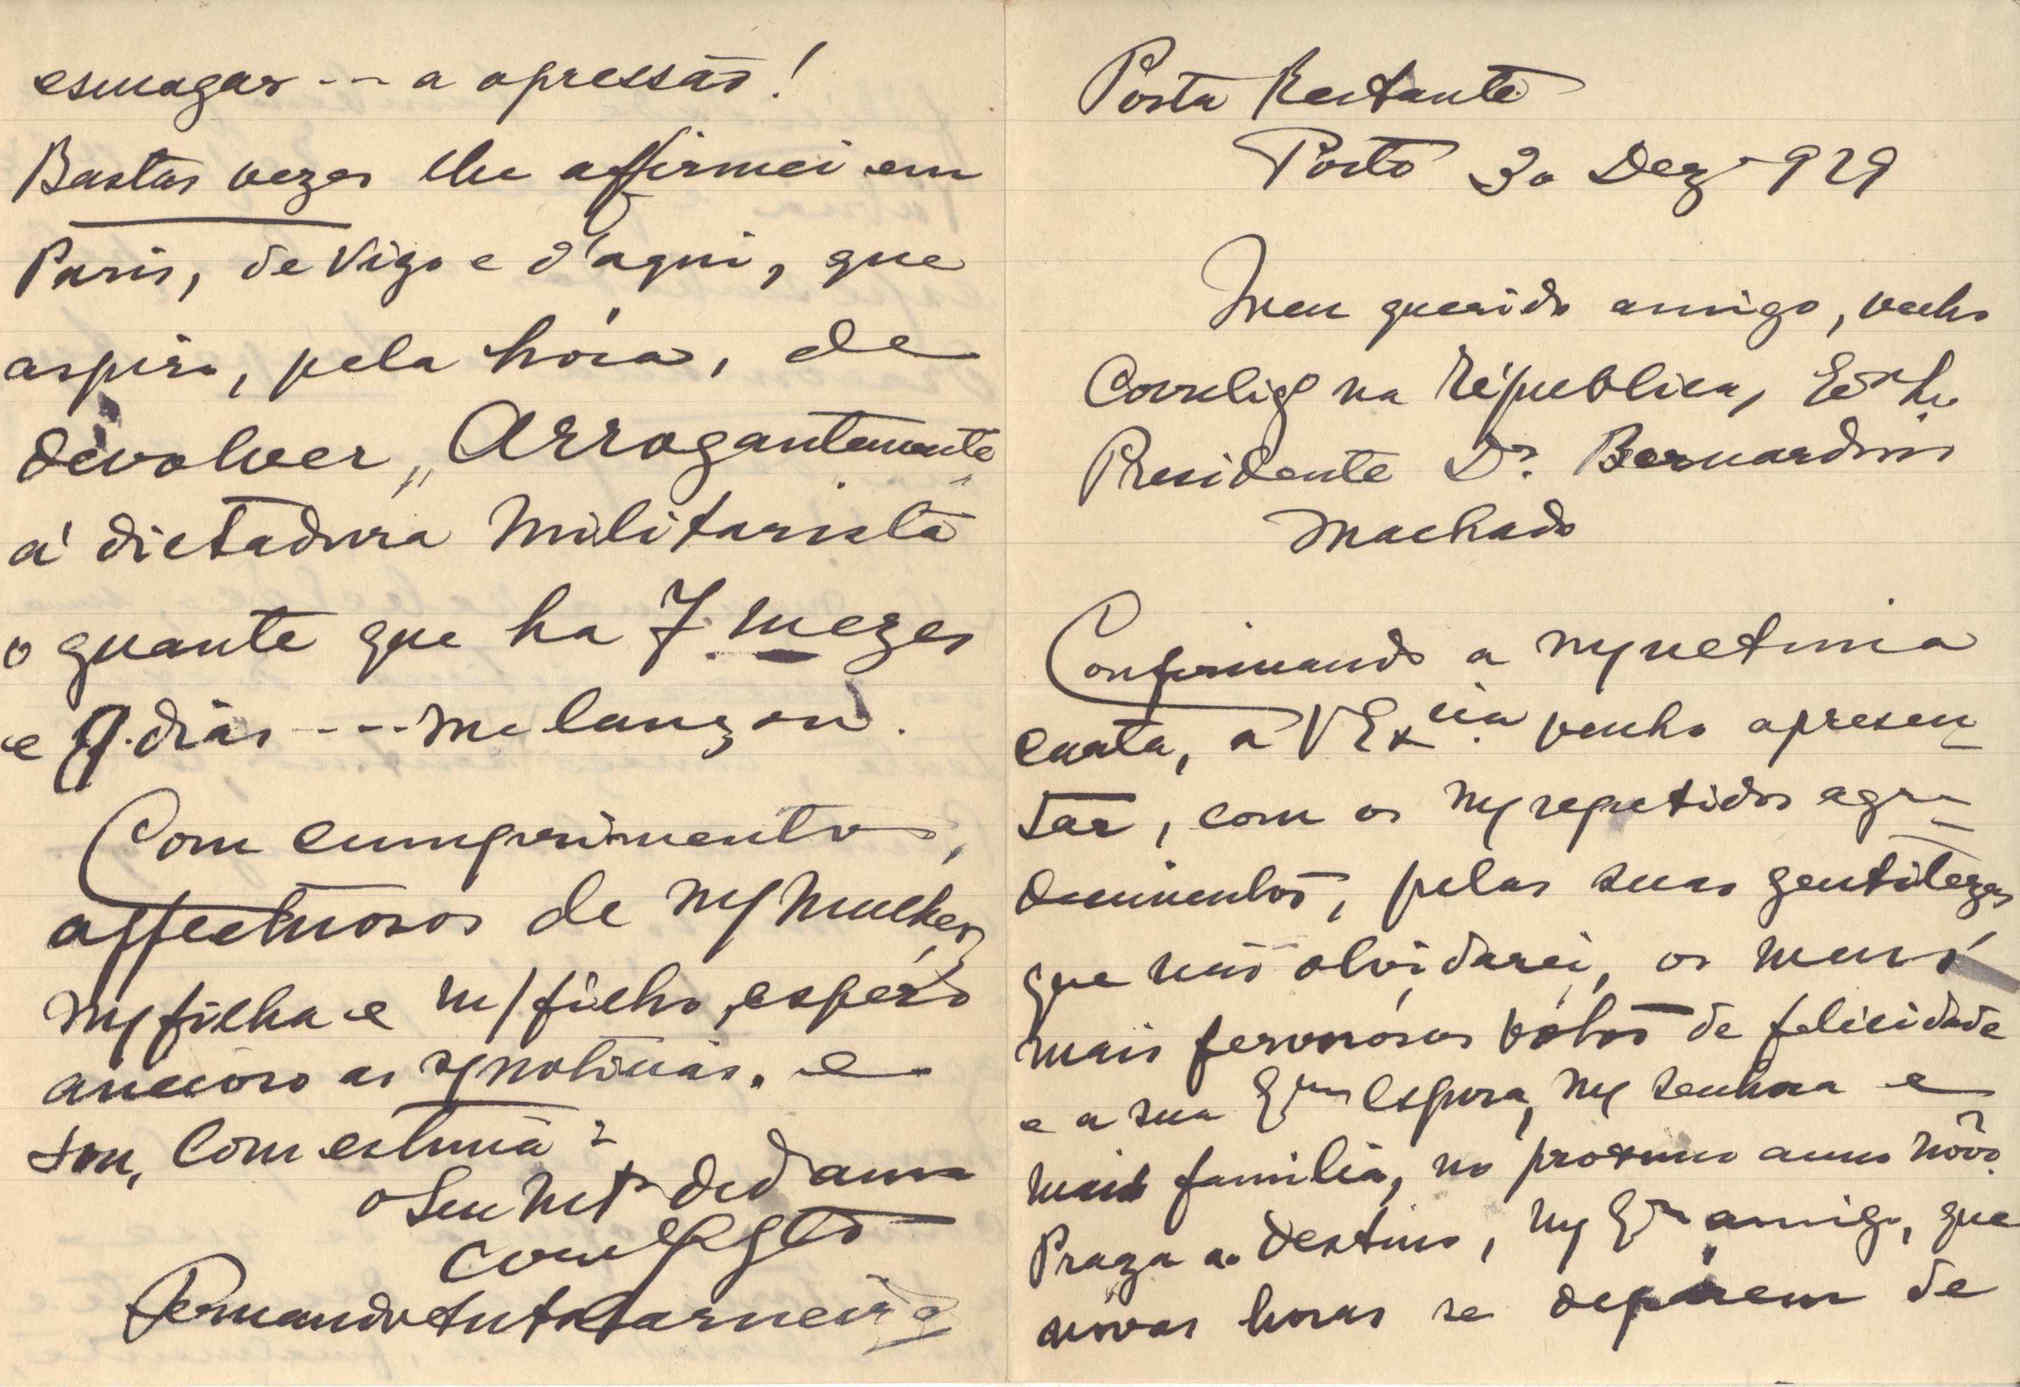 Posta Restante
Porto 30 Dez 929
Meu querido amigo, velho
Correlig.º na República, Ex.mo Sr.
Presidente Dr. Bernardino
Machado
Confirmando a m/ ultima
carta, a V Ex.cia venho apresen
tar, com os m/ repetidos agra
decimentos, pelas suas gentilezas
que não olvidarei, os meus
mais fervorósos vótos de felicidade
e a sua Ex.ma Espoza, m/ senhora e
mais familia, no proximo anno nôvo.
Praza ao destino, m/ Ex.mo amigo, que
nóvas horas se deparem de
esmagar --- a opressão!
Bastas vezes lhe affirmei em
Paris, de Vigo e d'aqui, que
aspiro, pela hóra, de
devolver, "Arrogantemente"
á dictadura Militarista
o guante que ha 7 mezes
e 9 dias --- me lançou.
Com cumprimentos,
affectuosos de m/ mulher,
m/ filha e m/ filho, espéro
ancioso as s/ noticias. e
sou, Com estima
o Seu Mt.º ded.º am.º
correlg.º gto
Fernando Carneiro